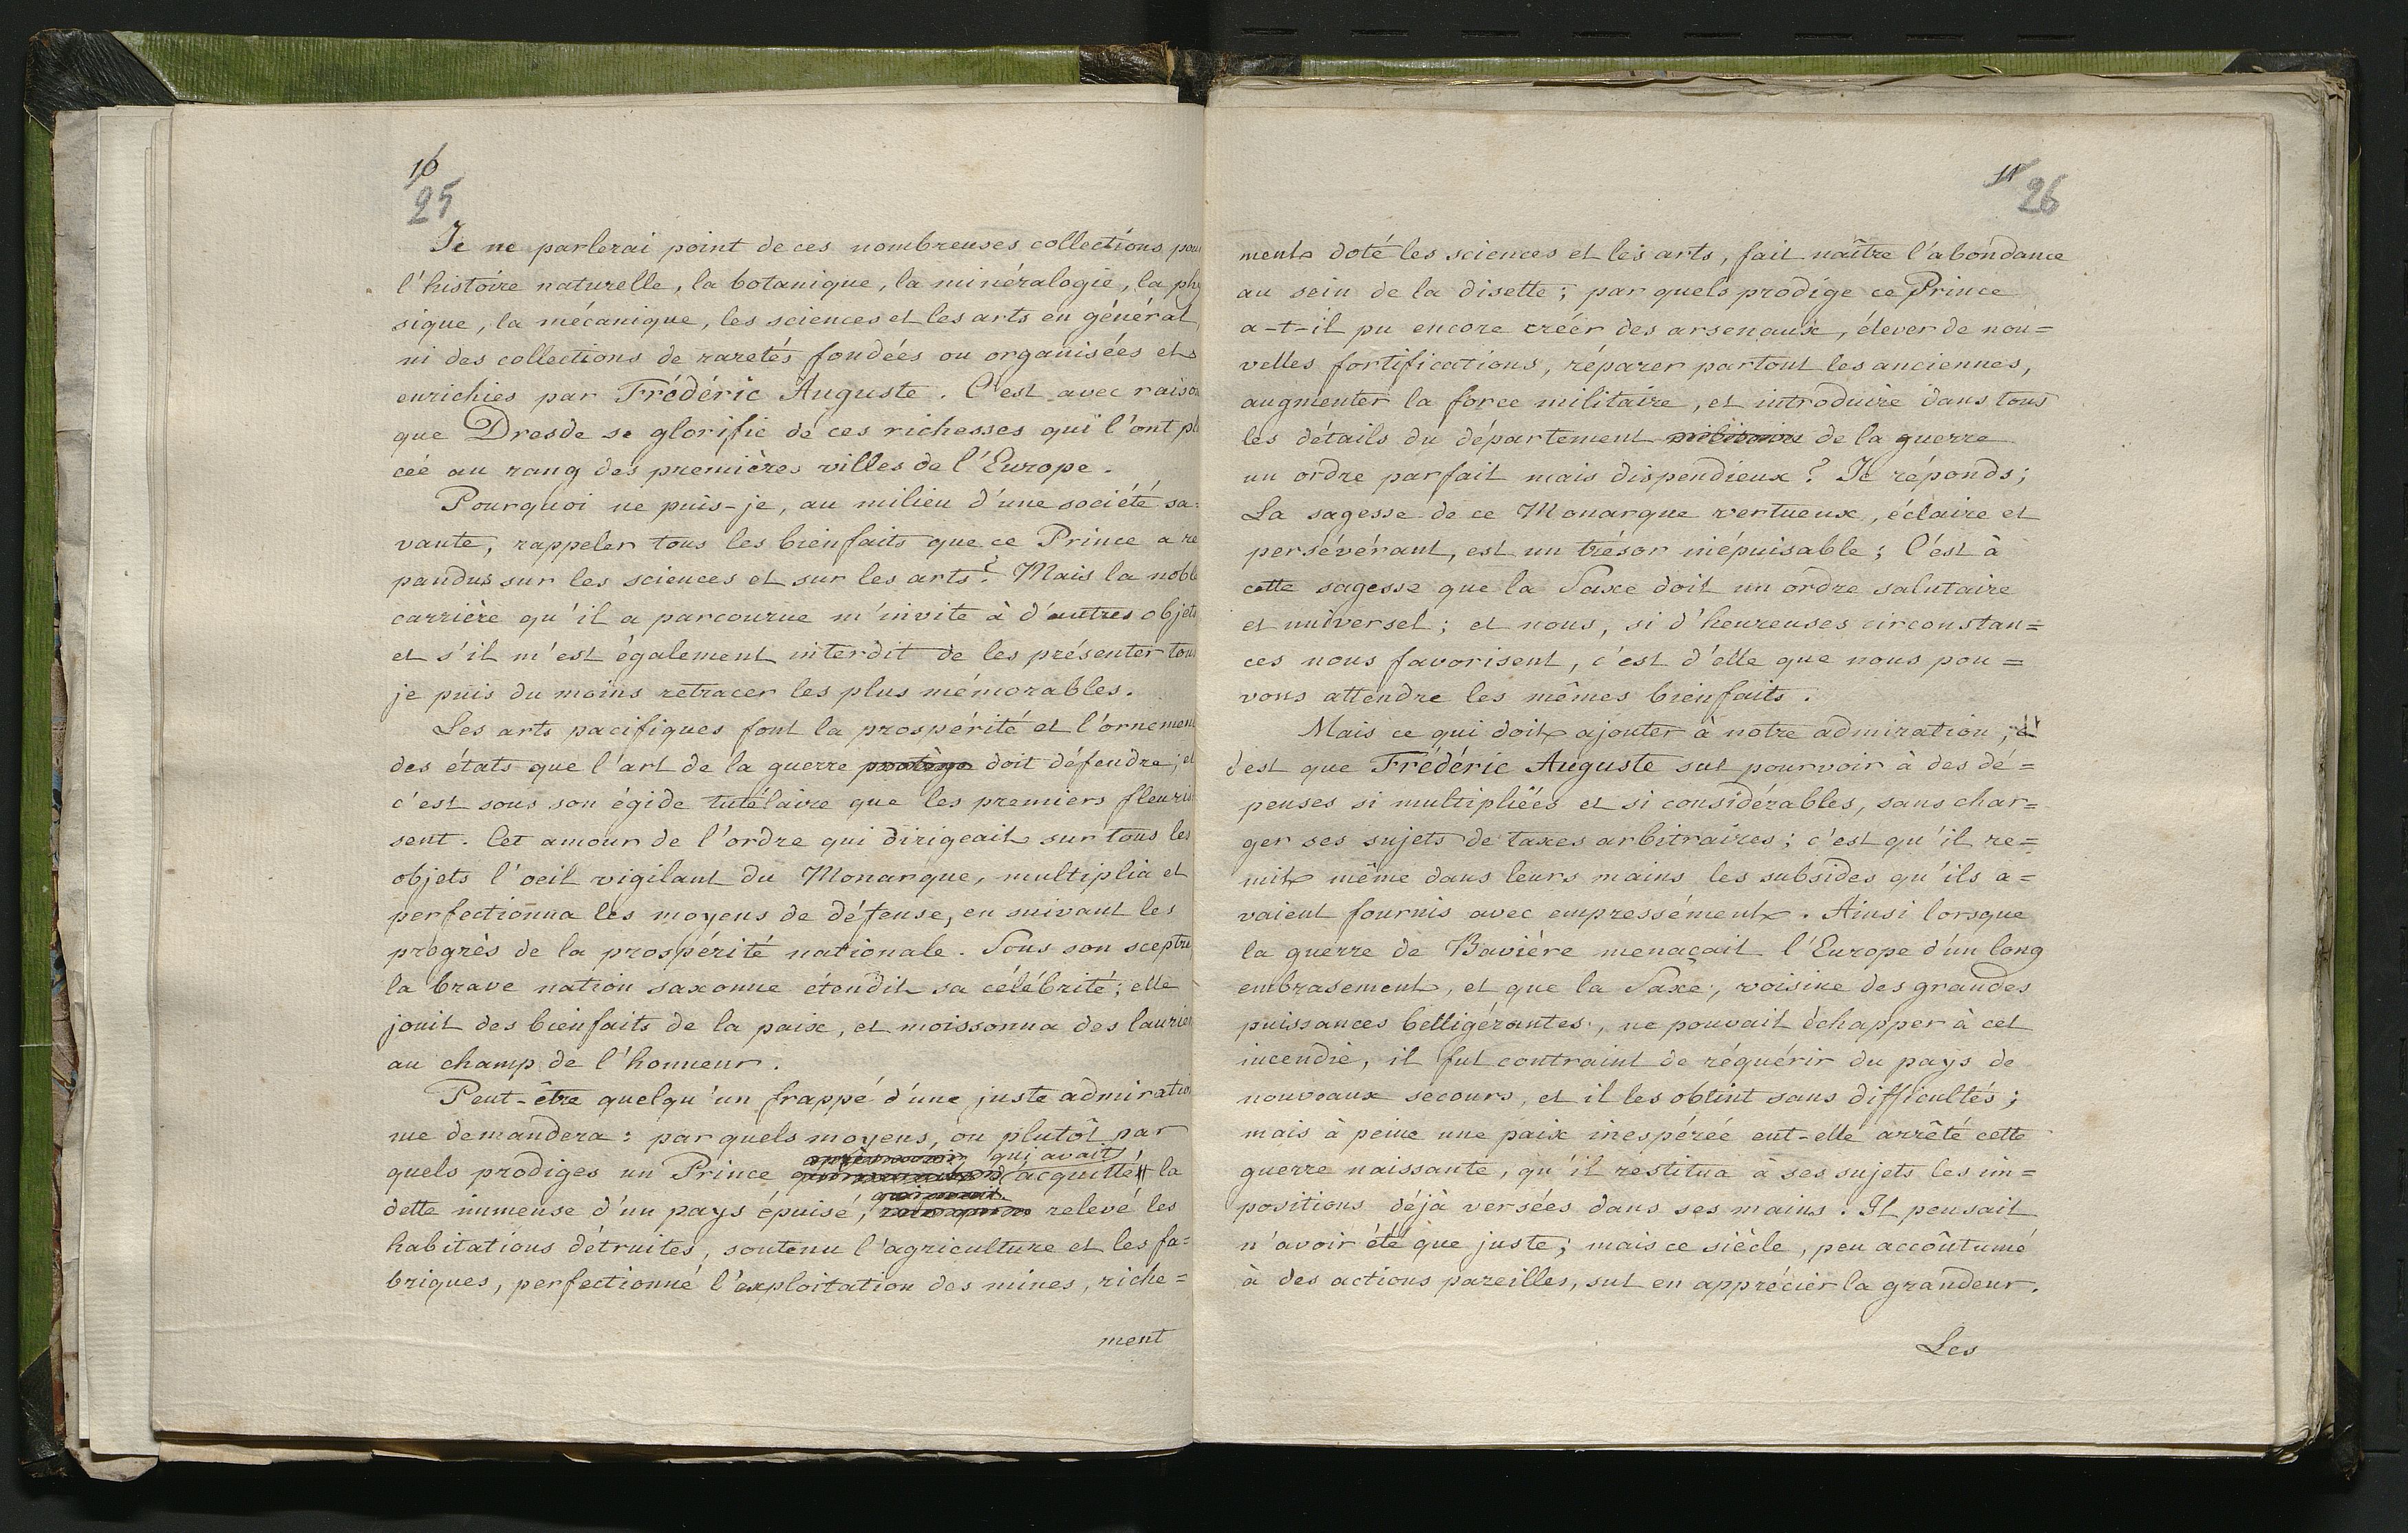 16
25
Je ne parlerai point de ces nombreuses collections pour
l'histoire naturelle, la botanique, la minéralogie, la phy
sique, la mécanique, les sciences et les arts en général,
ni des collections de raretés fondées ou organisées et
enrichies par Frédéric Auguste. C'est avec raison
que Dresde se glorifie de ces richesses qui l'ont pla
cée au rang des premières villes de l'Europe.
Pourquoi ne puis-je, au milieu d'une société sa-
vante, rappeler tous les bienfaits que ce Prince a ré
pandus sur les sciences et sur les arts? Mais la noble
carrière qu'il a parcourue m'invite à d'autres objets
et s'il m'est également interdit de les présenter tous
je puis du moins retracer les plus mémorables.
Les arts pacifiques font la prospérité et l'ornement
des états que l'art de la guerre protège doit défendre; et
c'est sous son égide tutélaire que les premiers fleuris
sent. Cet amour de l'ordre qui dirigeait sur tous les
objets l'oeil vigilant du Monarque, multiplia et
perfectionna les moyens de défense, en suivant les
progrès de la prospérité nationale. Sous son sceptre
la brave nation saxonne étendit sa célébrité; elle
jouit des bienfaits de la paix, et moissonna des laurier
au champ de l'honneur.
Peut-être quelqu'un frappé d'une juste admiratio
me demandera: par quels moyens, ou plutôt par
après avoir qui avait
quels prodiges un Prince acquitté la
qui avait
dette immense d'un pays épuisé, relevé les
habitations détruites, soutenu l'agriculture et les fa=
briques, perfectionné l'exploitation des mines, riche=
ment
11
26
ment doté les sciences et les arts, fait naître l'abondance
au sein de la disette; par quels prodige ce Prince
a-t-il pu encore créér des arsenaux, élever de nou=
velles fortifications, réparer partout les anciennes,
augmenter la force militaire, et introduire dans tous
les détails du département militaire de la guerre
un ordre parfait mais dispendieux? Je réponds;
La sagesse de ce Monarque vertueux, éclaire et
persévérant, est un trésor inépuisable; C'est à
cette sagesse que la Saxe doit un ordre salutaire
et universel; et nous, si d'heureuses circonstan=
ces nous favorisent, c'est d'elle que nous pou=
vons attendre les mêmes bienfaits.
Mais ce qui doit ajouter à notre admiration,
c'est que Frédéric Auguste sut pourvoir à des dé=
penses si multipliées et si considérables, sans char=
ger ses sujets de taxes arbitraires; c'est qu'il re=
mit même dans leurs mains les subsides qu'ils a=
vaient fournis avec empressément. Ainsi lorsque
la guerre de Bavière menaçait l'Europe d'un long
embrasement, et que la Saxe, voisine des grandes
puissances belligérantes, ne pouvait échapper à cet
incendie, il fut contraint de réquérir du pays de
nouveaux secours, et il les obtint sans difficultés;
mais à peine une paix inespérée eut-elle arrêté cette
guerre naissante, qu'il restitua à ses sujets les im=
positions déjà versées dans ses mains. Il pensait
n'avoir été que juste; mais ce siècle, peu accoûtumé
à des actions pareilles, sut en apprécier la grandeur.
Les